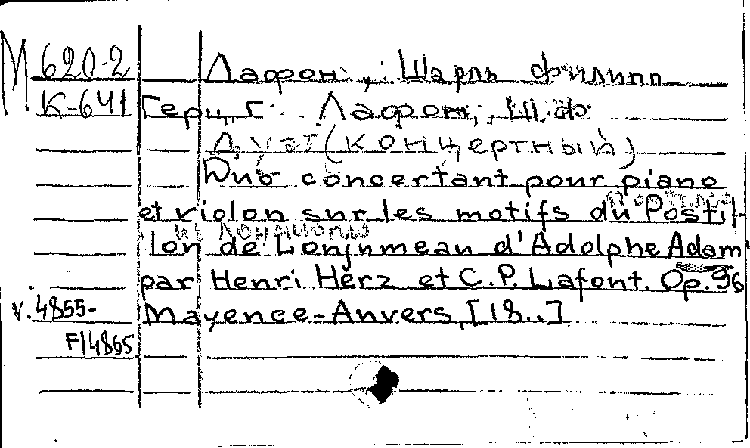 М 620-2
К-641
Лафон, Шарль Филипп
Герц, Г. Лафон, Ш.Ф
Дуэт (концертный)
Duo concertant pour piano
et violon sur les motifs du Postil-
lon de Lonjumeau d'Adolphe Adam
par Henri Herz et C.P. Lafont. Op. 96
v. 4855-
Mayence-Anvers, [18..]
F/4865